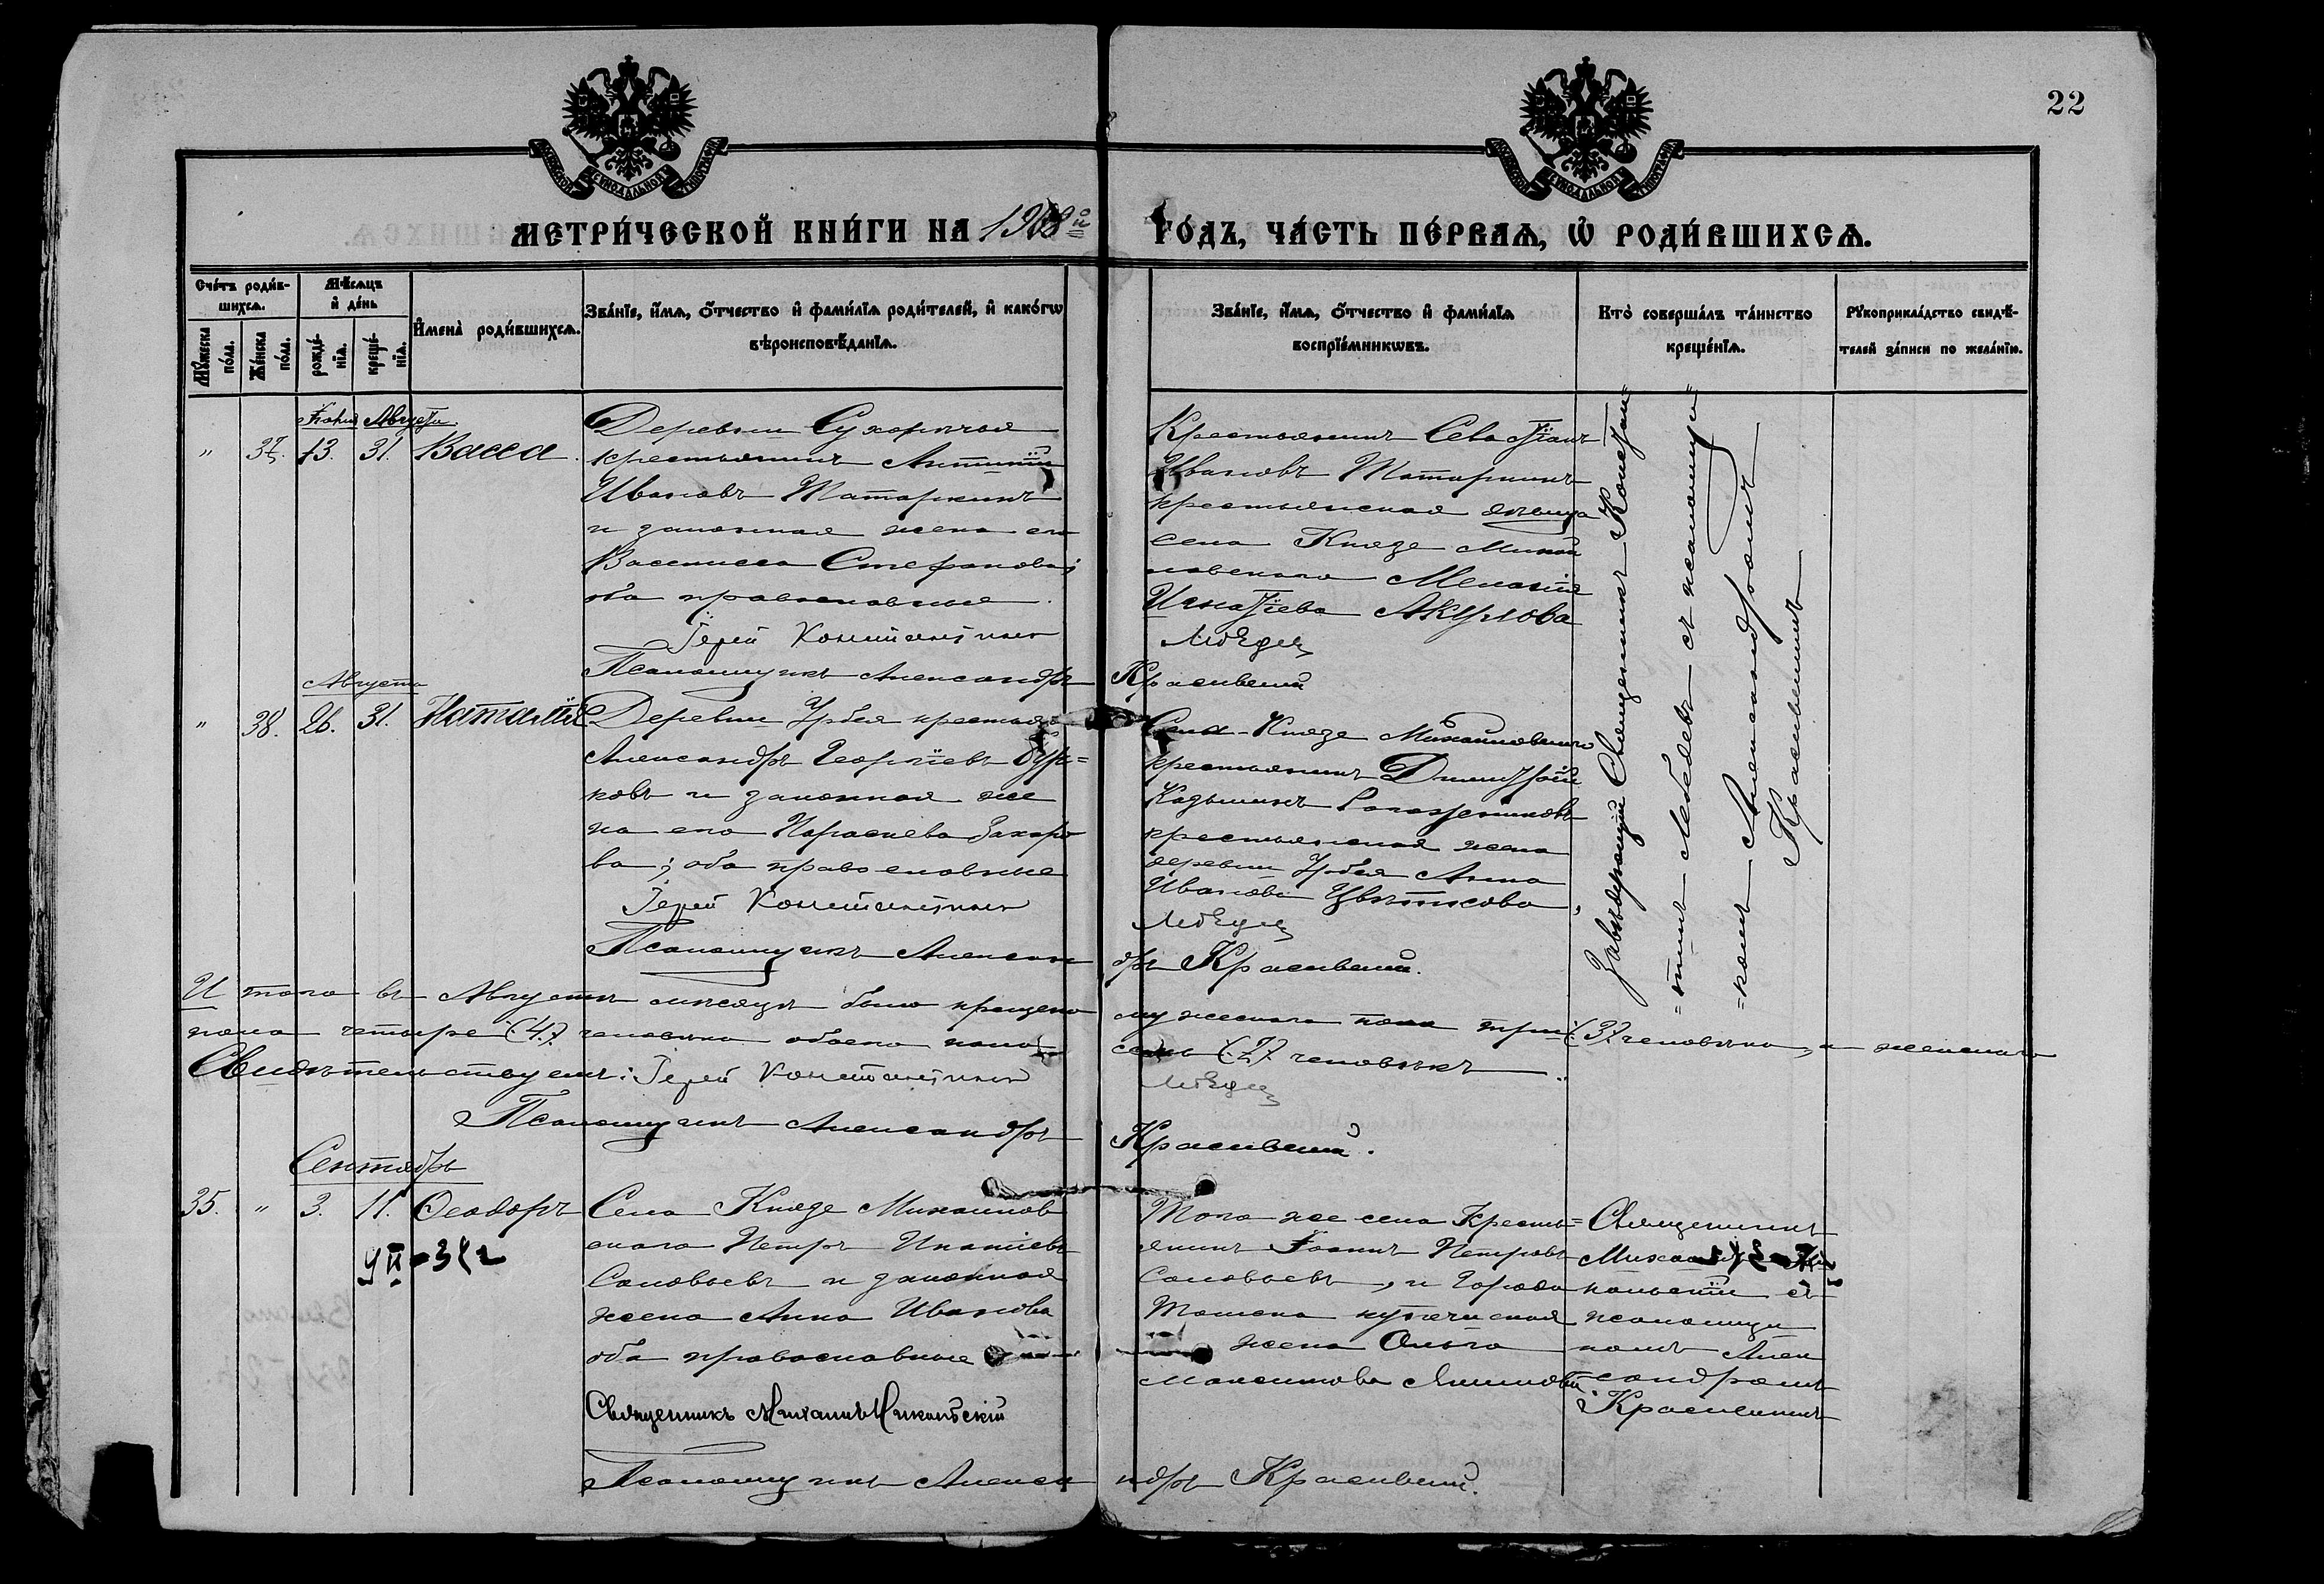 22
СѴНОДАЛЬНОЙ
СѴНОДАЛЬНОЙ
МЕТРИ́ЧЕСКОЙ КНИ́ГИ НА 1908й
ГО́ДЪ, ЧА́СТЬ ПЕ́РВАѦ, Ѡ҆ РОДИ́ВШИХСѦ.
Сче́тъ роди́в-
шихсѧ.
Мꙋ́жеска
по́ла.
Же́нска
по́ла.
Мѣ́сѧцъ
и҆ де́нь
рожде́-
нїѧ.
креще́-
нїѧ.
И҆мена̀ роди́вшихсѧ.
Зва́нїе, и҆́мѧ, ѻ҆́тчество и҆ фами́лїѧ роди́телей, и҆ како́гѡ
вѣроисповѣ́данїѧ.
Зва́нїе, и҆́мѧ, ѻ҆́тчество и҆ фами́лїѧ
воспрїе́мникѡвъ.
Кто̀ соверша́лъ та́инство
креще́нїѧ.
Рꙋкоприкла́дство свидѣ́-
телей за́писи по жела́нїю.
Августа
" 37. 13. 31. Васса.
Деревни
крестьянинъ Антипій
Ивановъ Татаркинъ
и законная жена его
Василисса Стефанова;
оба православные.
Іерей Константинъ
Псаломщикъ Александръ
Крестьянинъ Севастіанъ
Ивановъ Татаркинъ
крестьянская дѣвица
села Князе Михай
ловскаго Меланія
Игнатіева Акулова
Лебедев
Красивскій
Завѣдующій Священникъ Констан=
=тинъ Лебедевъ съ псаломщи=
=комъ Александромъ
Красивскимъ
Августа
" 38. 26. 31. Наталія
Деревни Урбея крестьян
Александръ Георгіевъ
ковъ и законная же
на его Параскева Захаро
ва; оба православные
Іерей Константинъ
Псаломщикъ Алексан
Села Князе Михайловскаго
крестьянинъ Димитрій
крестьянская жена
деревни Урбея Анна
Иванова Цвѣткова,
Лебедев
дръ Красивскій.
И того въ Августѣ мѣсяцѣ было крещено мужескаго пола три (3) человѣка, а женскаго
пола четыре (4) человѣка обоего пола семь (7) человѣкъ
Свидѣтельствуемъ: Іерей Константинъ Лебедев
Псаломщикъ Александръ Красивскій.
Сентябрь
35. " 3. 11. Ѳеодоръ
Села Князе Михайлов
скаго Петръ Игнатіевъ
Соловьевъ и законная
жена Анна Иванова
оба православные
Священникъ Михаилъ Никольскій
Псаломщикъ Алекса
Того же села Кресть=
янинъ Іоаннъ Петровъ
Соловьевъ, и Города
Томска купеческая
жена Ольга
Максимова
ндръ Красивскій.
Священникъ
Михаилъ Ни
кольскій съ
псаломщи
комъ Алек
сандромъ
Красивскимъ